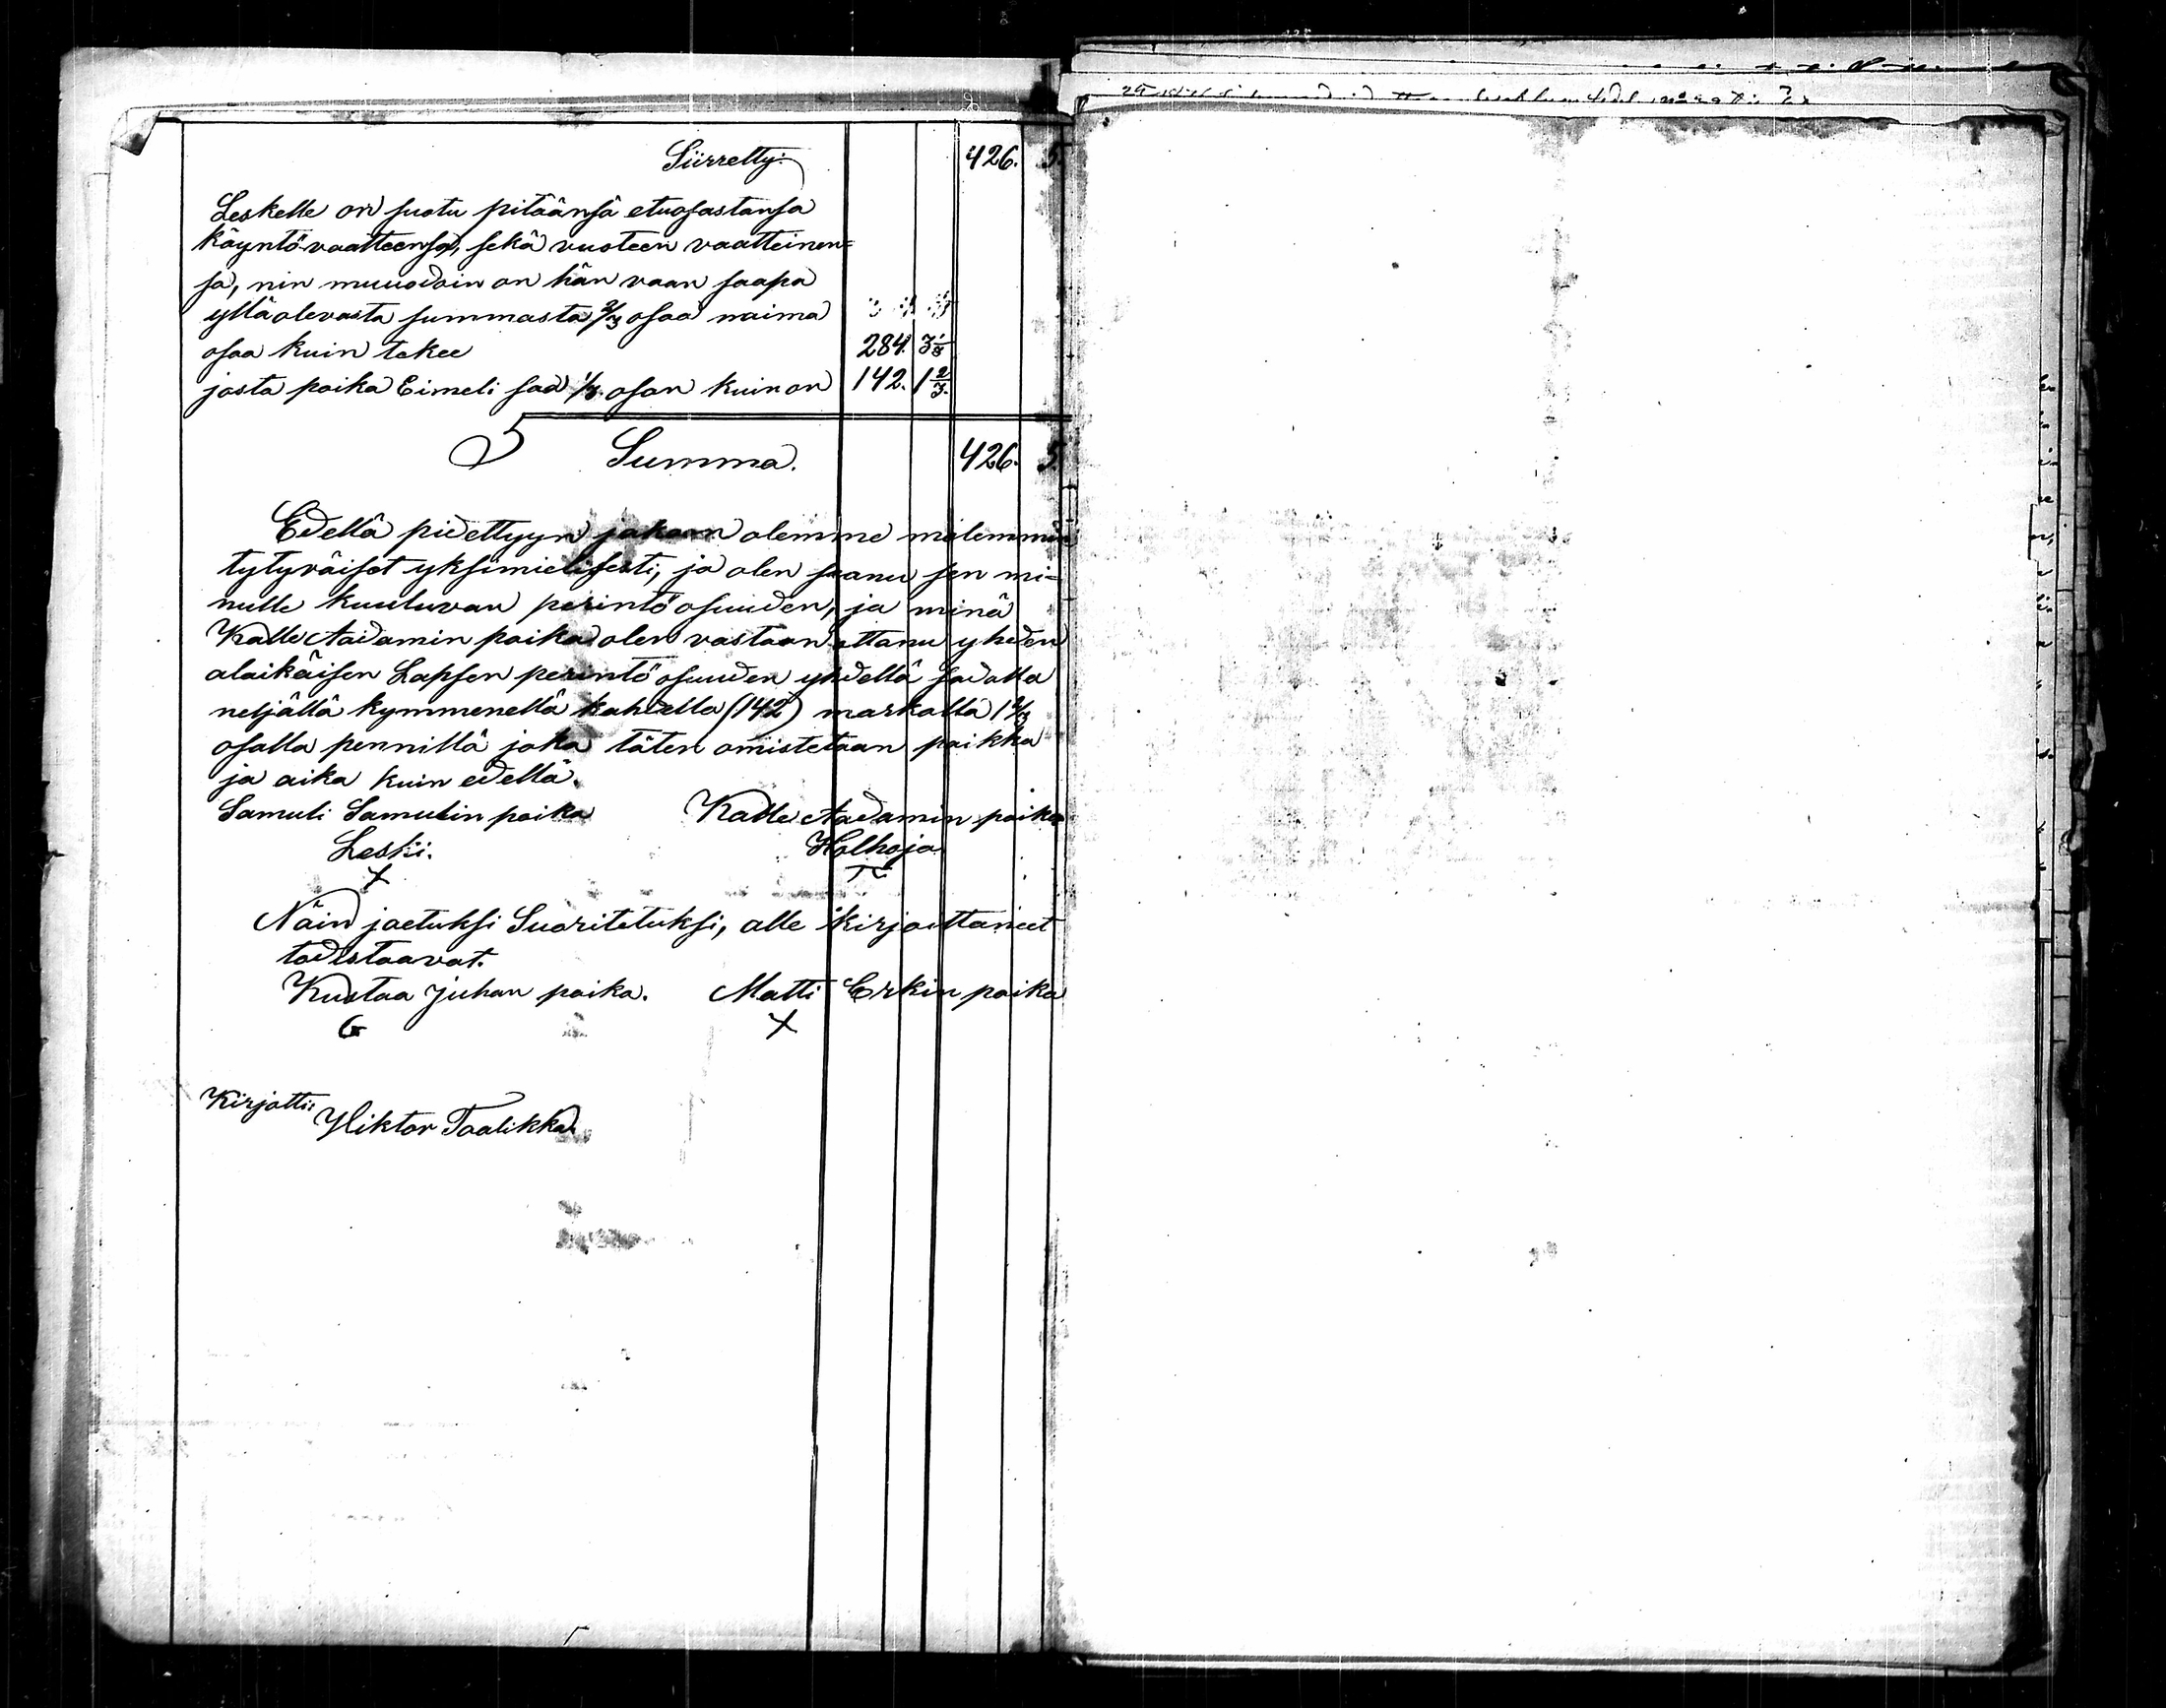 Siirretty: 426. 5.
Leskelle on suotu pitäänsä etuosastansa
käyntövaatteensa, sekä vuoteen vaatteinen=
sa, nin muuodoin on hän vaan saapa
ylläolevasta summasta 2/3 osaa naima
osaa kuin tekee 284. 3 1/3
josta poika Eimeli saa 1/3 osan kuin on 142. 1 2/3.
Summa. 426. 5.
Edellä pidettyyn jakoon olemme molemmin
tytyväiset yksimielisesti, ja olen saanu sen mi=
nulle kuuluvan perintö osuuden, ja minä
Kalle Aadamin poika olen vastaan ottanu yhden
alaikäisen Lapsen perintö osuuden yhdellä sadalla
neljällä kymmenellä kahdella (142) markalla 1 2/3
osalla pennillä joka täten omistetaan paikka
ja aika kuin edellä.
Samuli Samulin poika Kalle Aadamin poika
Leski. Holhoja
Näin jaetuksi Suoritetuksi, alle kirjoittaneet
todistaavat.
Kustaa Juhan poika. Matti Erkin poika
G X
Kirjotti:
Wiktor Taalikka.